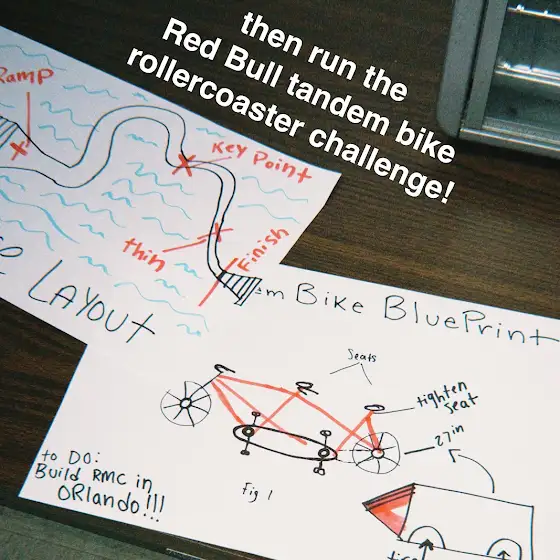 then run the
Red Bull tandem bike
rollercoaster challenge!
Ramp
Key Point
thin
Finish
LAYOUT
Bike BluePrint
Seats
tighten
Seat
27in
to DO:
Build RMC in
ORlando!!!
Fig 1